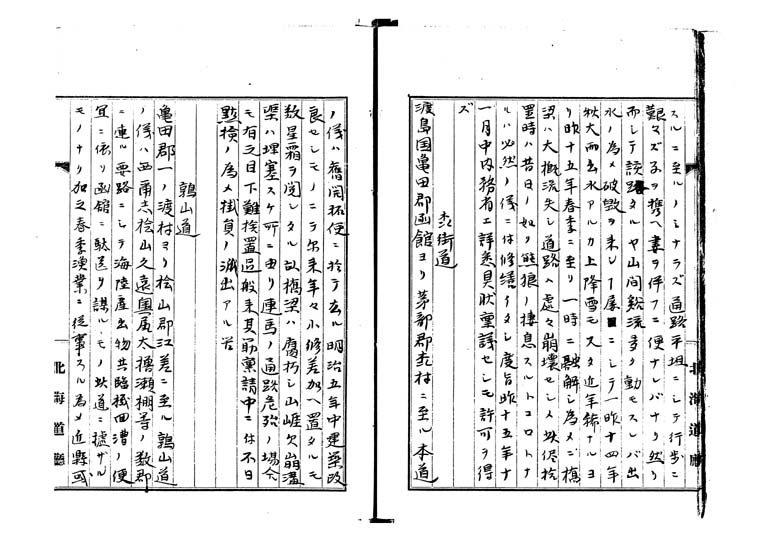 スルニ至ルノミナラズ通路平坦ニシテ行歩ニ
艱マズ子ヲ携ヘ妻ヲ伴フニ便ナレバナリ然リ
而シテ該路タルヤ山間谿流多ク動モスレバ出
水ノ為メ破毀ヲ来シ1屡ニシテ一昨十四年
秋大雨出水アルカ上降雪モ又タ近年稀ナルヨ
リ昨十五年春季ニ至リ一時ニ融解シ為メニ橋
梁ハ大概流失シ道路ハ處々崩壊セシメ此侭捨
置時ハ昔日ノ如ク熊狼ノ棲息スルトコロトナ
ルハ必然ノ儀ニ付修繕イタシ度旨昨十五年十
一月中内務省エ詳悉具状稟請セシモ許可ヲ得
ズ
森街道
渡島国亀田郡函館ヨリ茅部郡森村ニ至ル本道
ノ儀ハ舊開拓使ニ於テ去ル明治五年中建築改
良セシモノニテ尓来年々小修差加ヘ置タルモ
数星霜ヲ閲シタル故橋梁ハ腐朽シ山崕欠崩溝
渠ハ埋塞スケ所ニ由リ運馬ノ通路危殆ノ場合
モ有之目下難捨置過般来其筋稟請中ニ付不日
點検ノ為メ掛員ノ派出アル筈
鶉山道
亀田郡一ノ渡村ヨリ桧山郡江差ニ至ル鶉山道
ノ儀ハ西爾志桧山久遠奥尻太櫓瀬棚等ノ数郡
ニ連ル要路ニシテ海陸産出物共臨機回漕ノ便
宜ニ依リ函館ニ駄送ヲ謀ルモノ此道ニ據ザル
モノナリ加之春季漁業ニ従事スル為メ近縣或
北海道廳
北海道廳